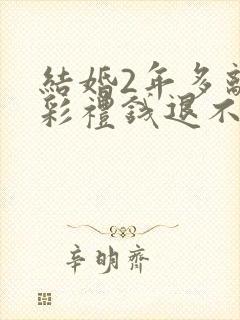 結婚2年多離
彩禮錢退不
辛明齊